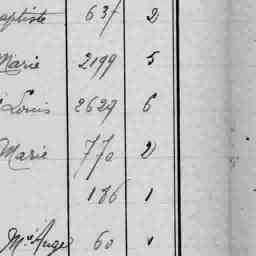 aptiste 637 2
Marie 2199 5
Louis 2629 6
Marie 770 2
186 1
Mie Ange 60 v